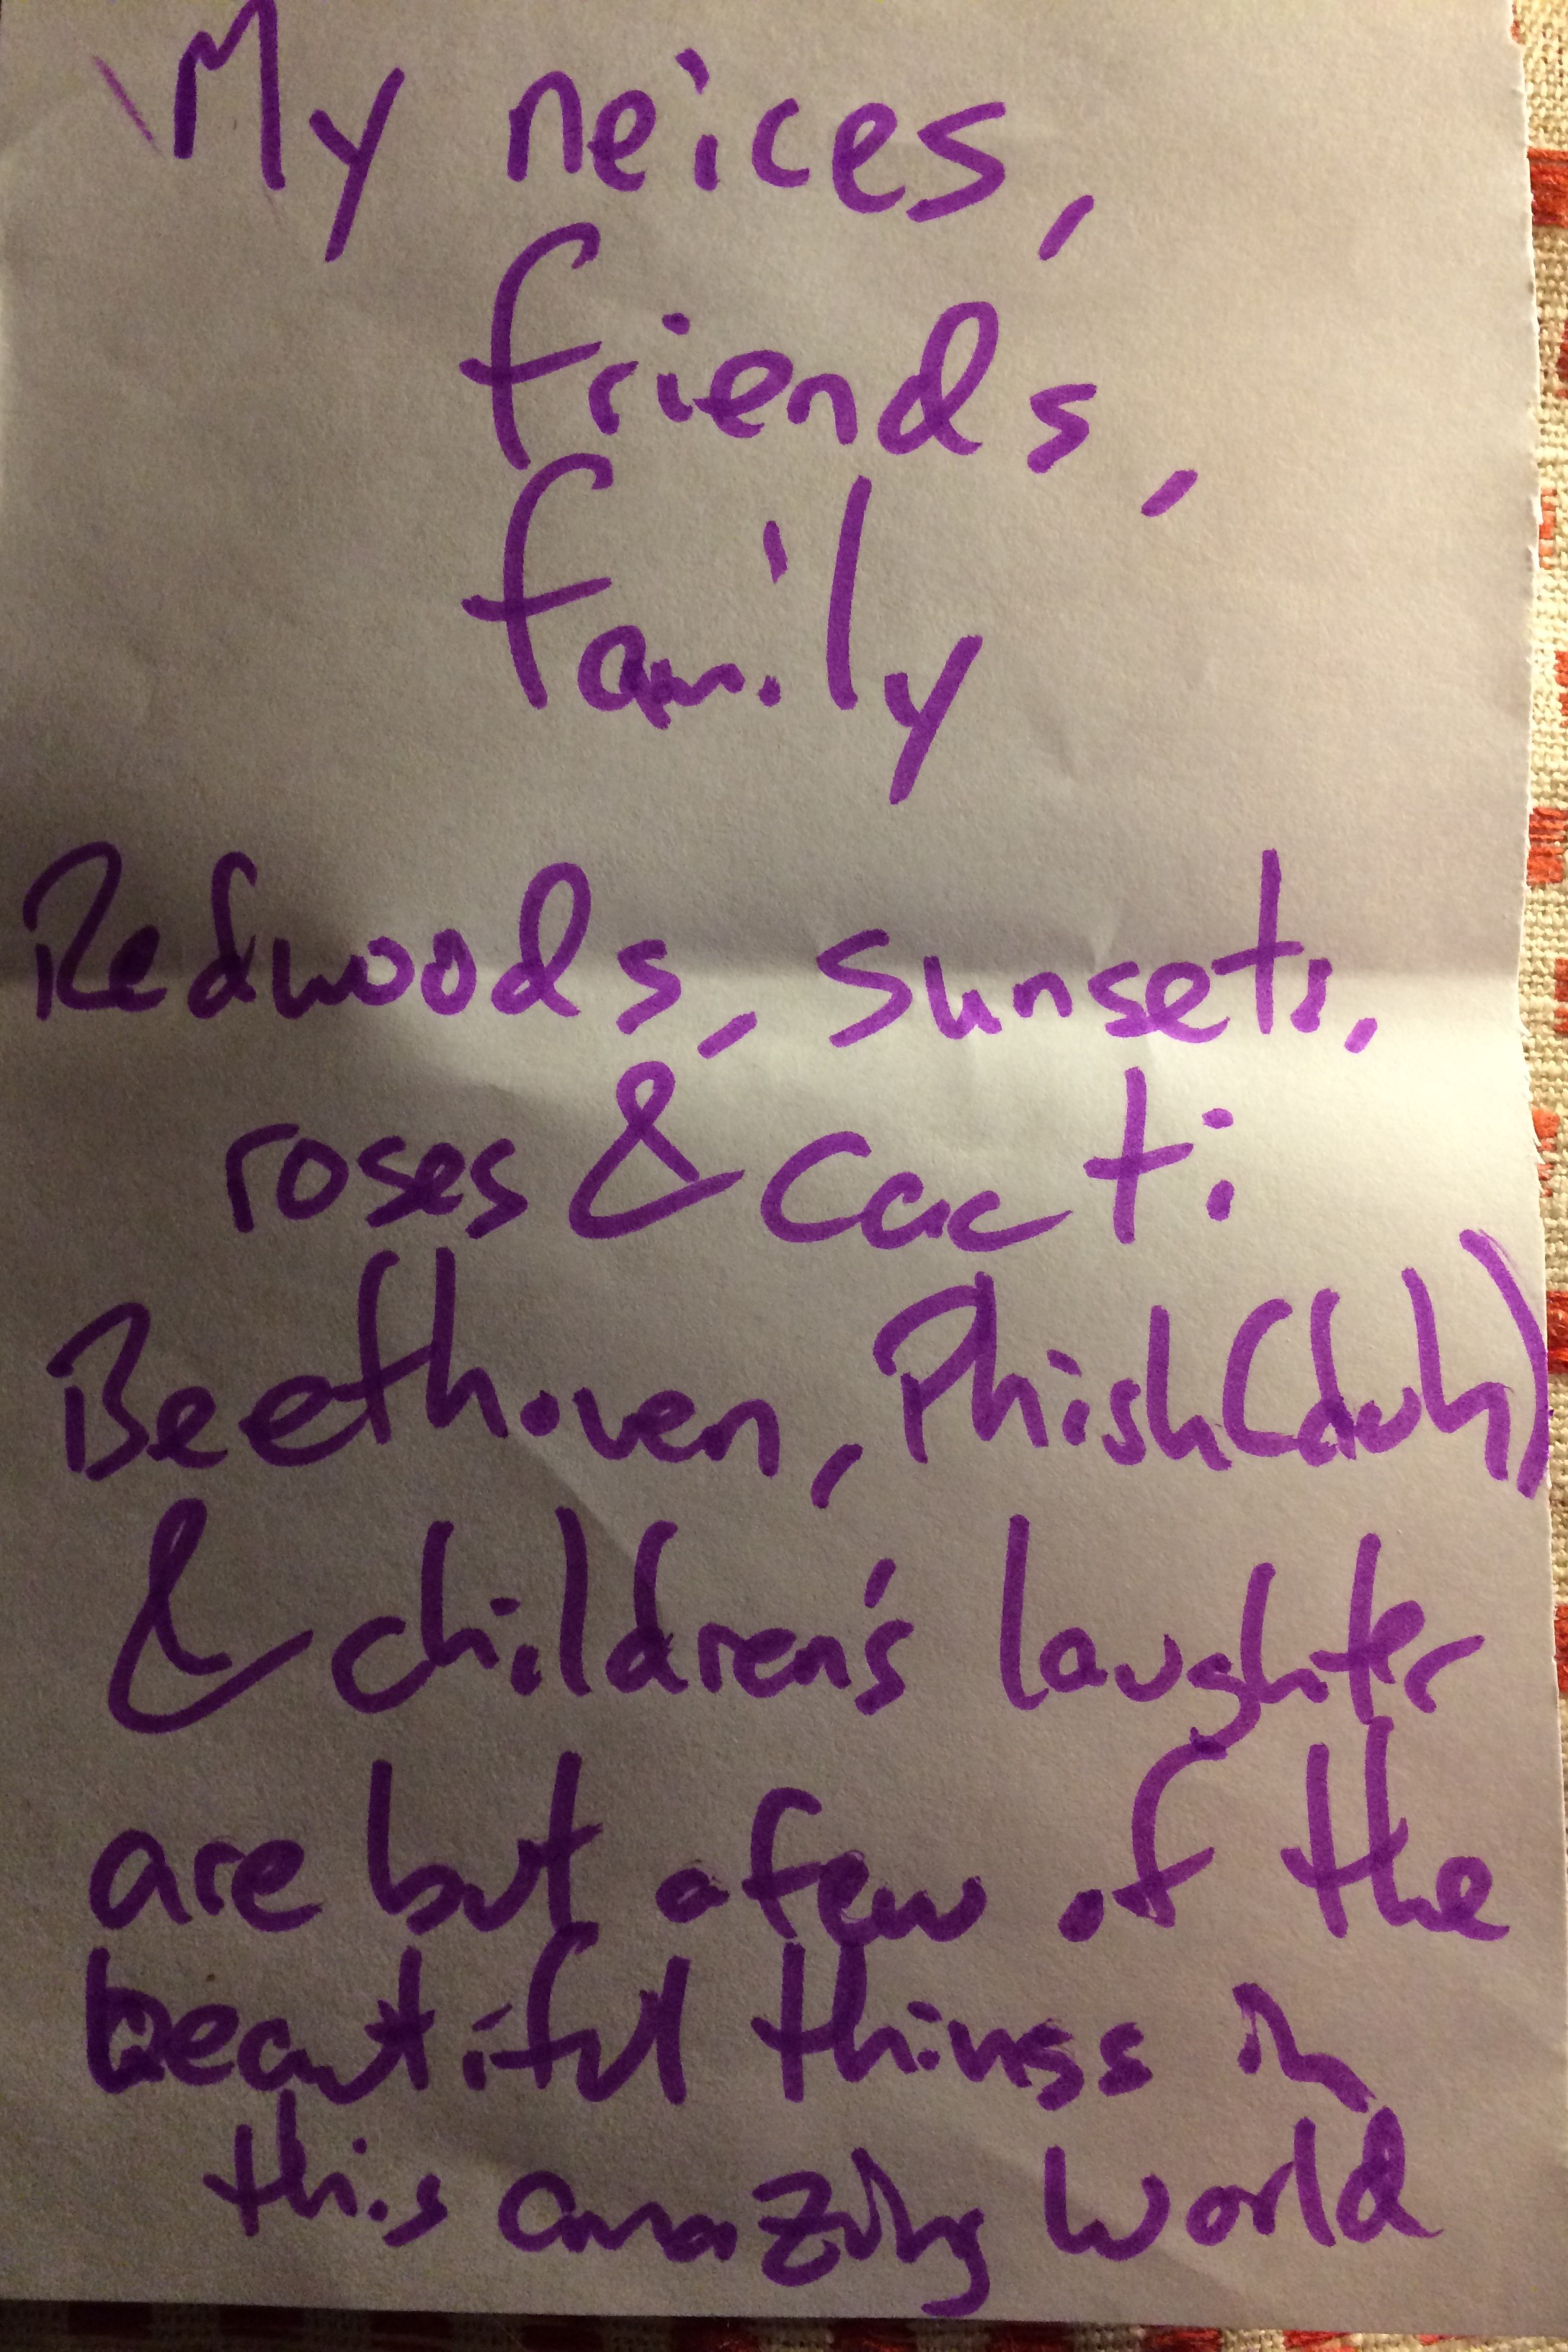 My neices,
friends,
family
Redwoods, sunsets,
roses & cacti
Beethoven, Phish (duh)
& children's laughter
are but a few of the
beautiful things in
this amazing world